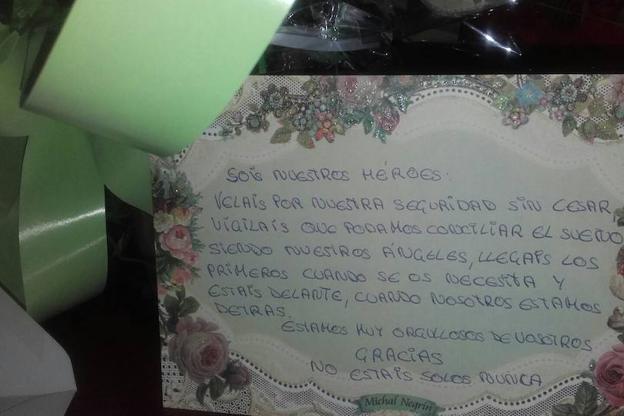 SOIS NUESTROS HÉROES:
VELAIS POR NUESTRA SEGURIDAD SIN CESAR,
VIGILAIS QUE PODAMOS CONCILIAR EL SUEÑO
SIENDO NUESTROS ÁNGELES, LLEGAIS LOS
PRIMEROS CUANDO SE OS NECESITA Y
ESTAIS DELANTE, CUANDO NOSOTROS ESTAMOS
DETRAS.
ESTAMOS MUY ORGULLOSOS DE VOSOTROS
GRACIAS
NO ESTAIS SOLOS NUNCA
Michal Negrin